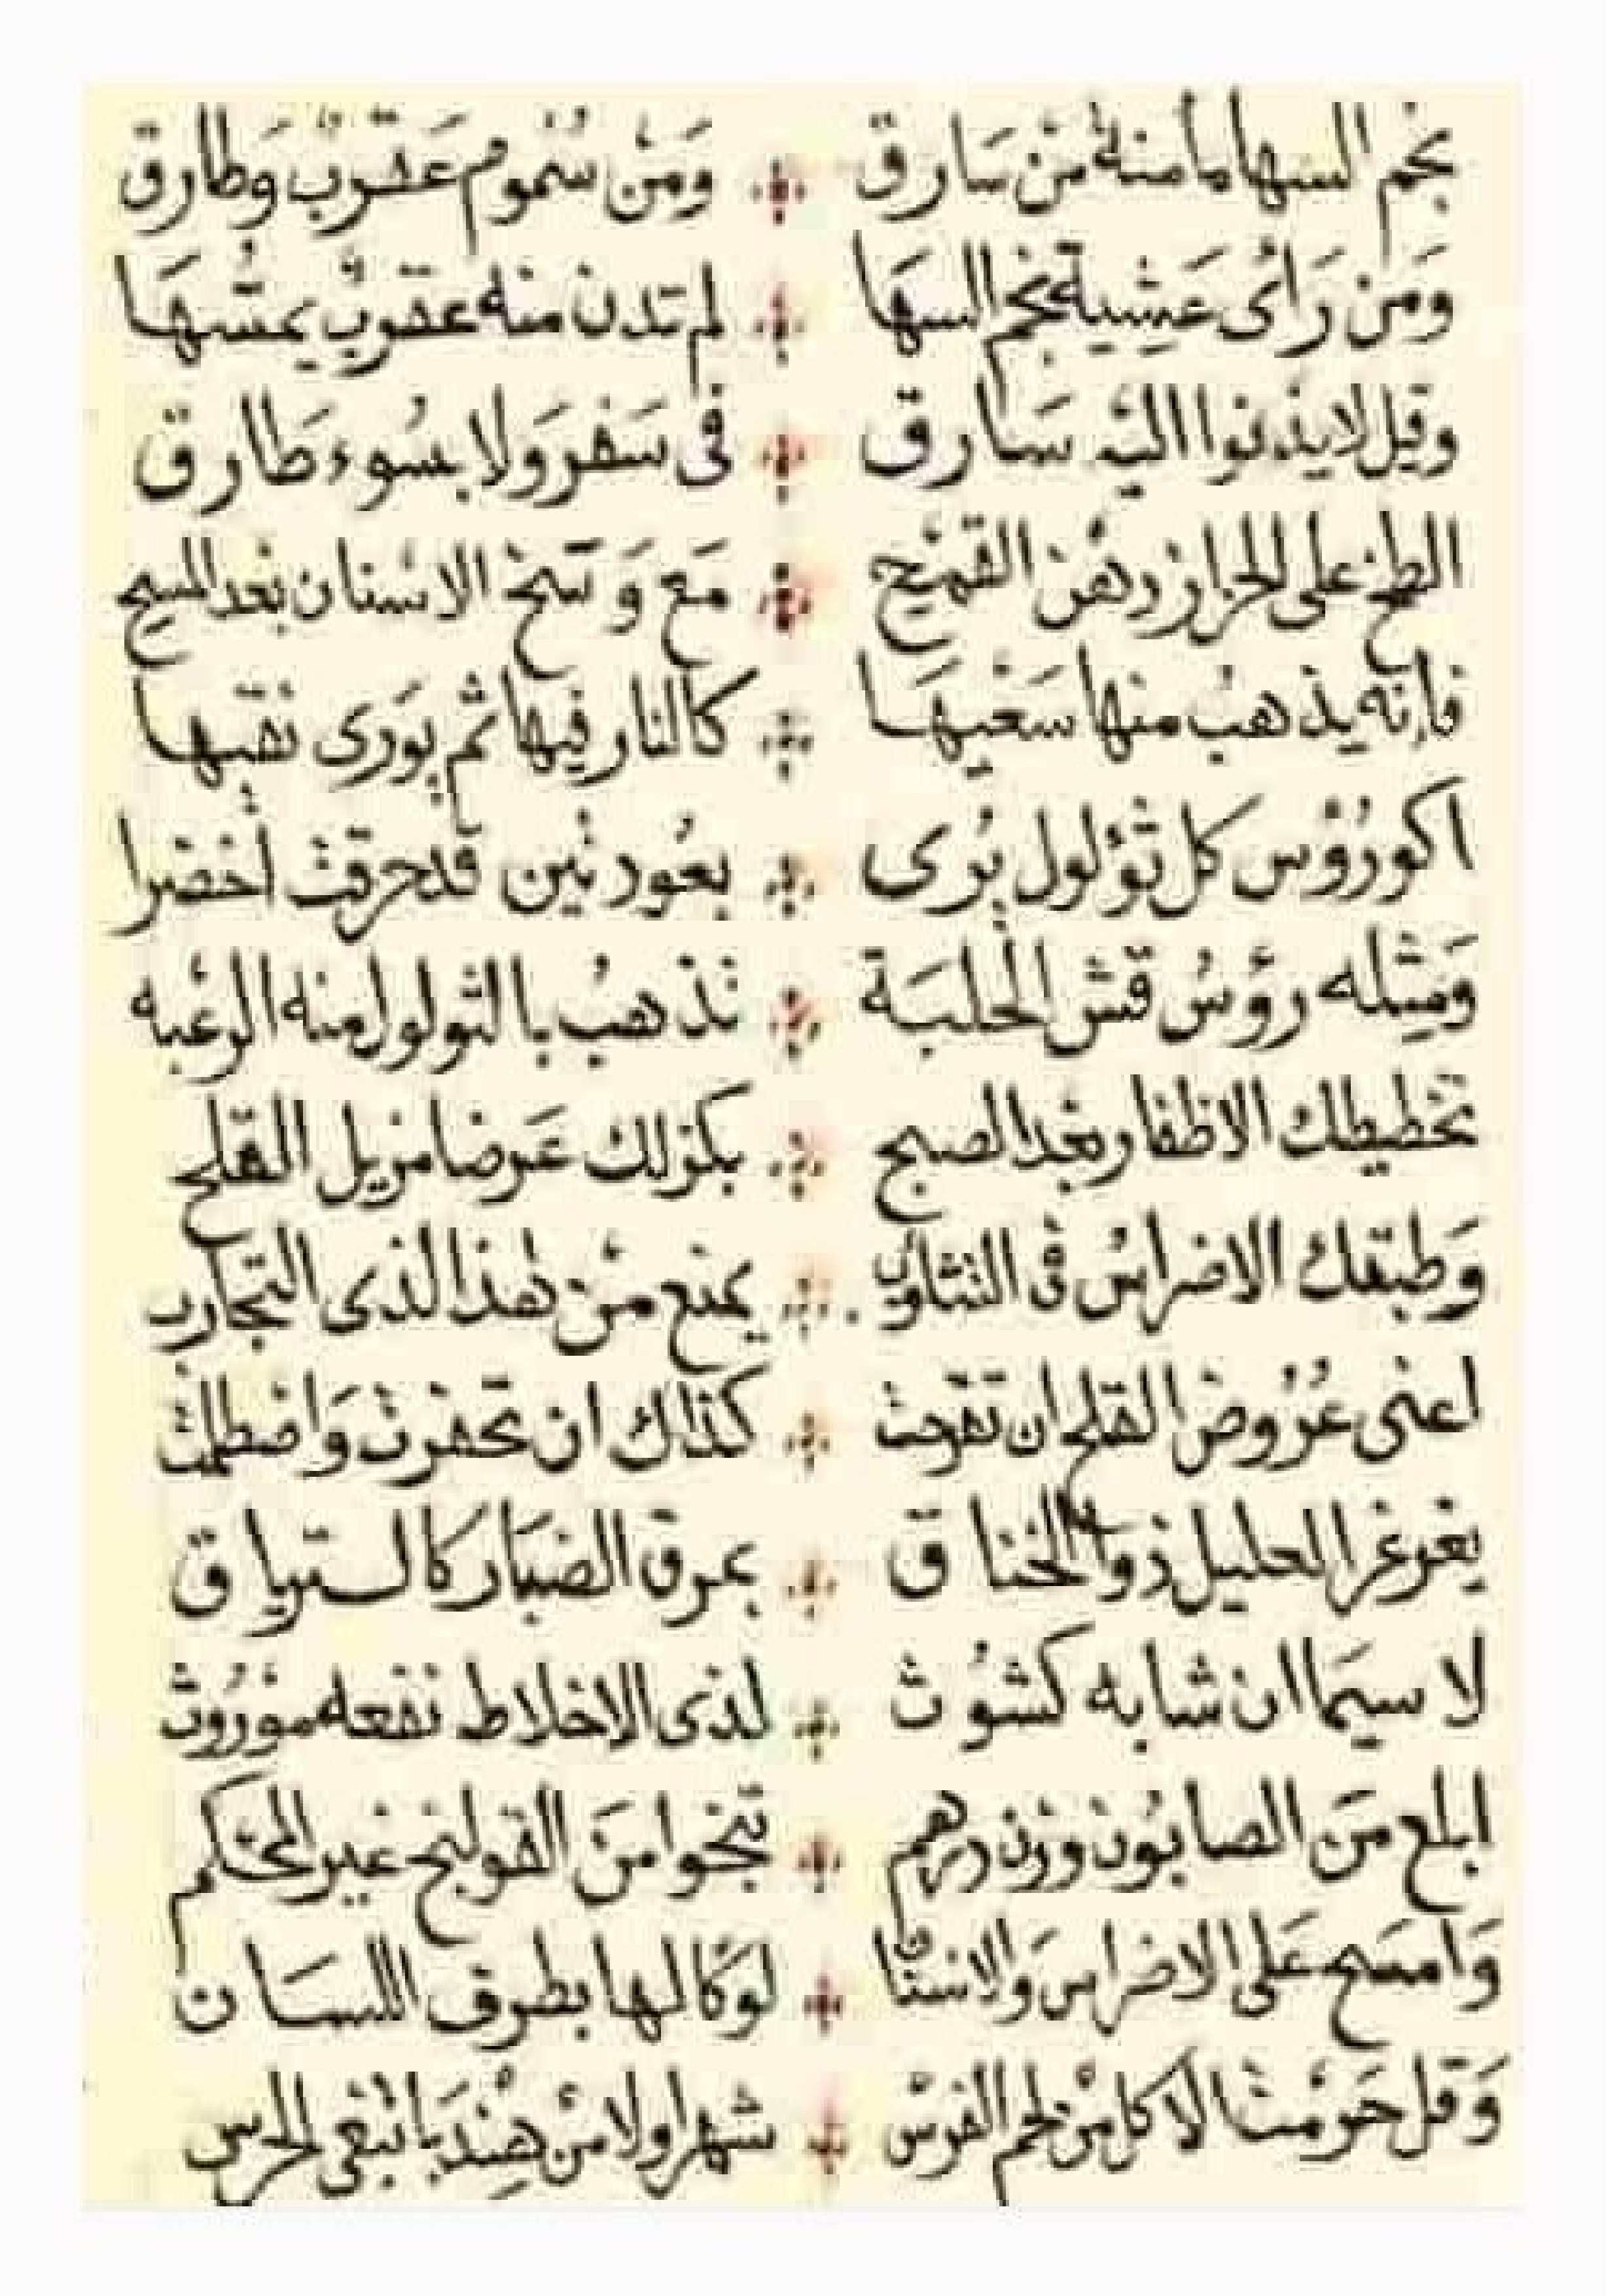 نجم السها ما منه من سارق ومن سموم عقرب وطارق
ومن رأى عشية نجم السها لم تدن منه عقرب يمسها
وقيل لا يدنوا اليه سارق في سفر ولا بسوء طارق
الطخ على الحزاز دهن القمح مع وسخ الاسنان بعد المسح
فإنه يذهب منها سعيها كالنار فيها ثم يورى نقبها
اكو رؤس كل ثؤلول يرى بعود تين قد حرقت أخضرا
ومثله رؤس قش الحلبة تذهب بالثولول منه الرغبه
تخطيطك الاظفار بعد الصبح بكزلك عرضا مزيل القلح
وطبقك الاضراس في التثاوب يمنع من هذا لذى التجارب
اعنى عروض القلح ان تقرحت كذاك ان تحفرت واضطلمت
يغرغر العليل ذوا الخناق بمرق الضبار كالترياق
لا سيما ان شابه كشوث لذى الاخلاط نفعه موروث
ابلع من الصابون وزن درهم تنجوا من القولنج غير المحكم
وامسح على الاضراس والاسنان لوكا لها بطرف اللسان
وقل حرمت الاكل من لحم الفرس شهرا ولا من هندبا تبغى الحرس